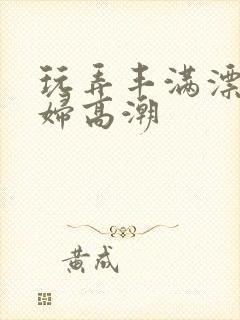 玩弄丰满漂
妇高潮
黄成